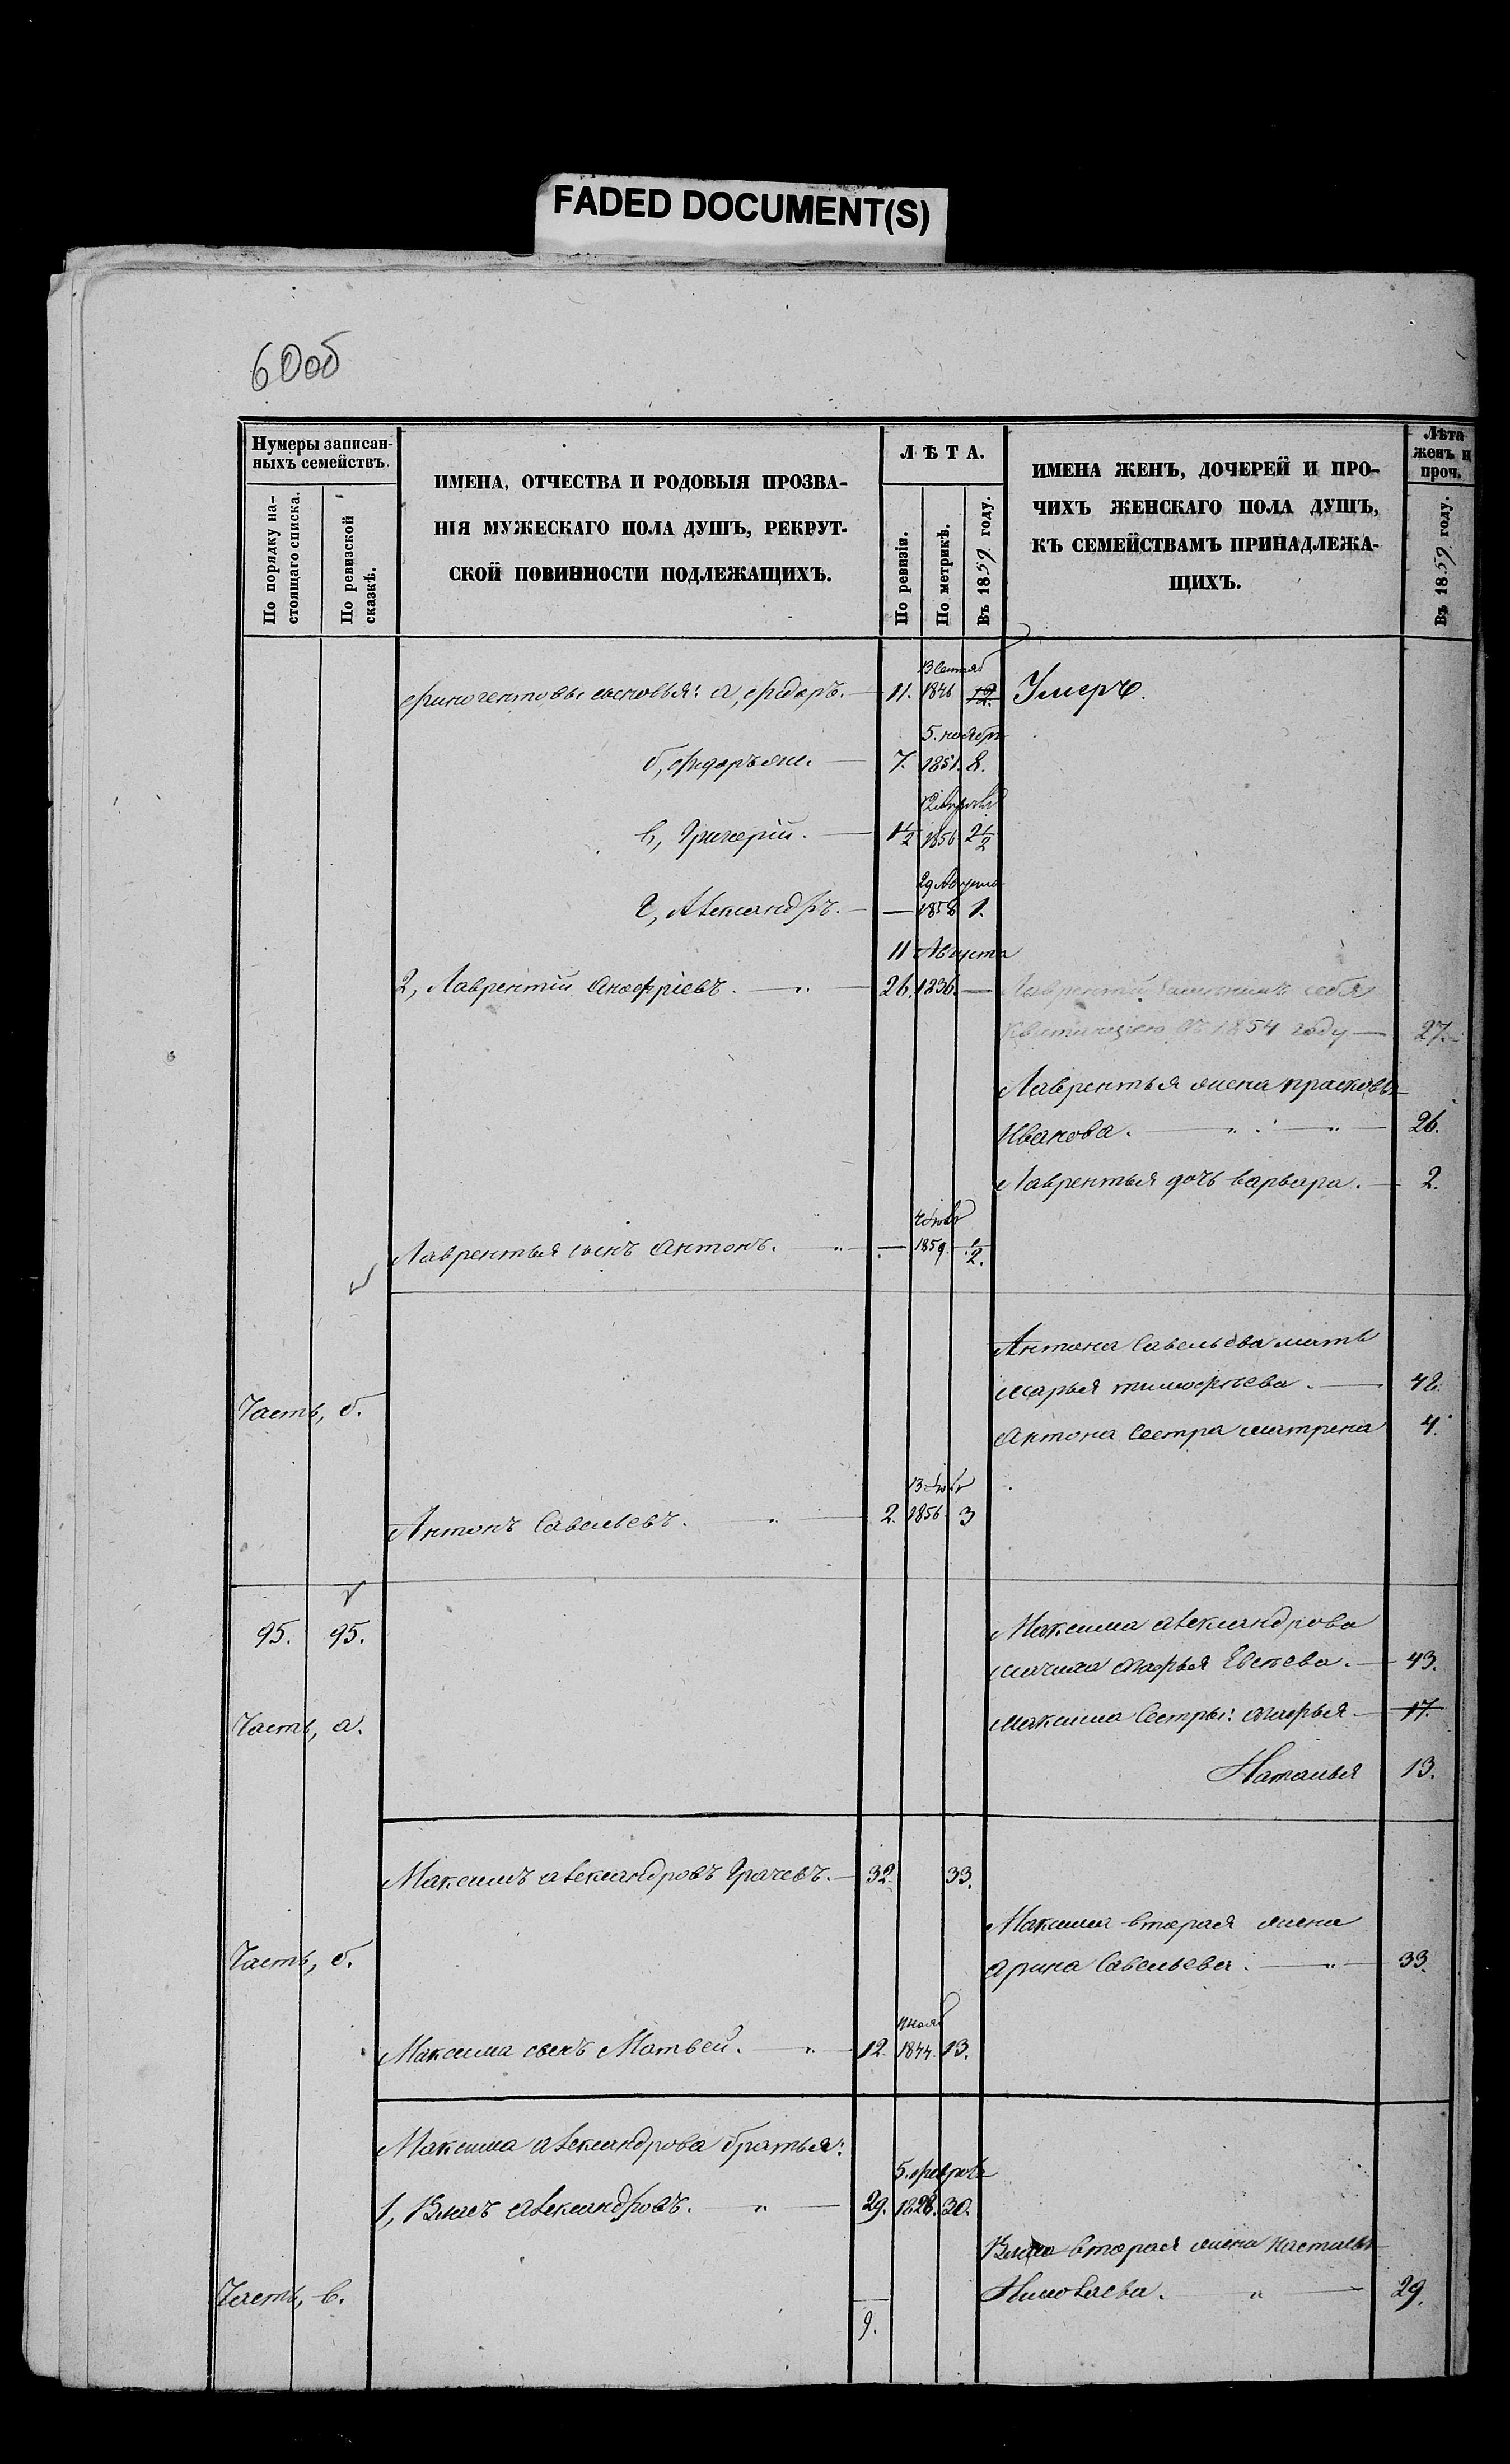 FADED DOCUMENT(S)
60об
Нумеры записан-
ныхъ семействъ.
По порядку на-
стоящаго списка.
По ревизской
сказкѣ.
ИМЕНА, ОТЧЕСТВА И РОДОВЫЯ ПРОЗВА-
НІЯ МУЖЕСКАГО ПОЛА ДУШЪ, РЕКРУТ-
СКОЙ ПОВИННОСТИ ПОДЛЕЖАЩИХЪ.
ЛѢТА.
По ревизіи.
По метрикѣ.
Въ 1859 году.
ИМЕНА ЖЕНЪ, ДОЧЕРЕЙ И ПРО-
ЧИХЪ ЖЕНСКАГО ПОЛА ДУШЪ,
КЪ СЕМЕЙСТВАМЪ ПРИНАДЛЕЖА-
ЩИХЪ.
Лѣта
женъ и
проч.
Въ 1859 году.
13 Сентяб
Финогентовы сыновья: а, Федоръ. — 11. 1846 12. Умеръ.
5. ноября
б, Федоръ же. — 7. 1851. 8.
в, Григорій. — 1½ 1856 2½
29 Августа
г, Александръ. — — 1858 1.
11 Августа
2, Лаврентій Анофріевъ. — 26. 1836. — Лаврентій себя
квитанціею въ 1854 году — 27.
Лаврентья жена прасковья
Иванова. — 26.
Лаврентья дочь варвара. — 2.
Лаврентья сынъ Антонъ. — 1859. ½.
Антона Савельева мать
Марья тимофѣева. — 42.
Часть, б.
Антона Сестра матрена 4.
Антонъ Савельевъ. — 2. 1856. 3
95. 95.
Максима александрова
мачиха Марья Евсѣева. — 43.
Часть, а.
Максима Сестры: Марья — 17.
Наталья 13.
Максимъ александровъ Грачевъ. — 32. 33.
Максима вторая жена
Часть, б.
Арина Савельева. — 33.
Максима сынъ Матвей. — 12. 1844. 13.
Максима александрова братья:
5. Февраля
1, Власъ александровъ. — 29. 1828. 30.
Власа вторая жена настасья
Часть, в.
Николаева. — 29.
9.